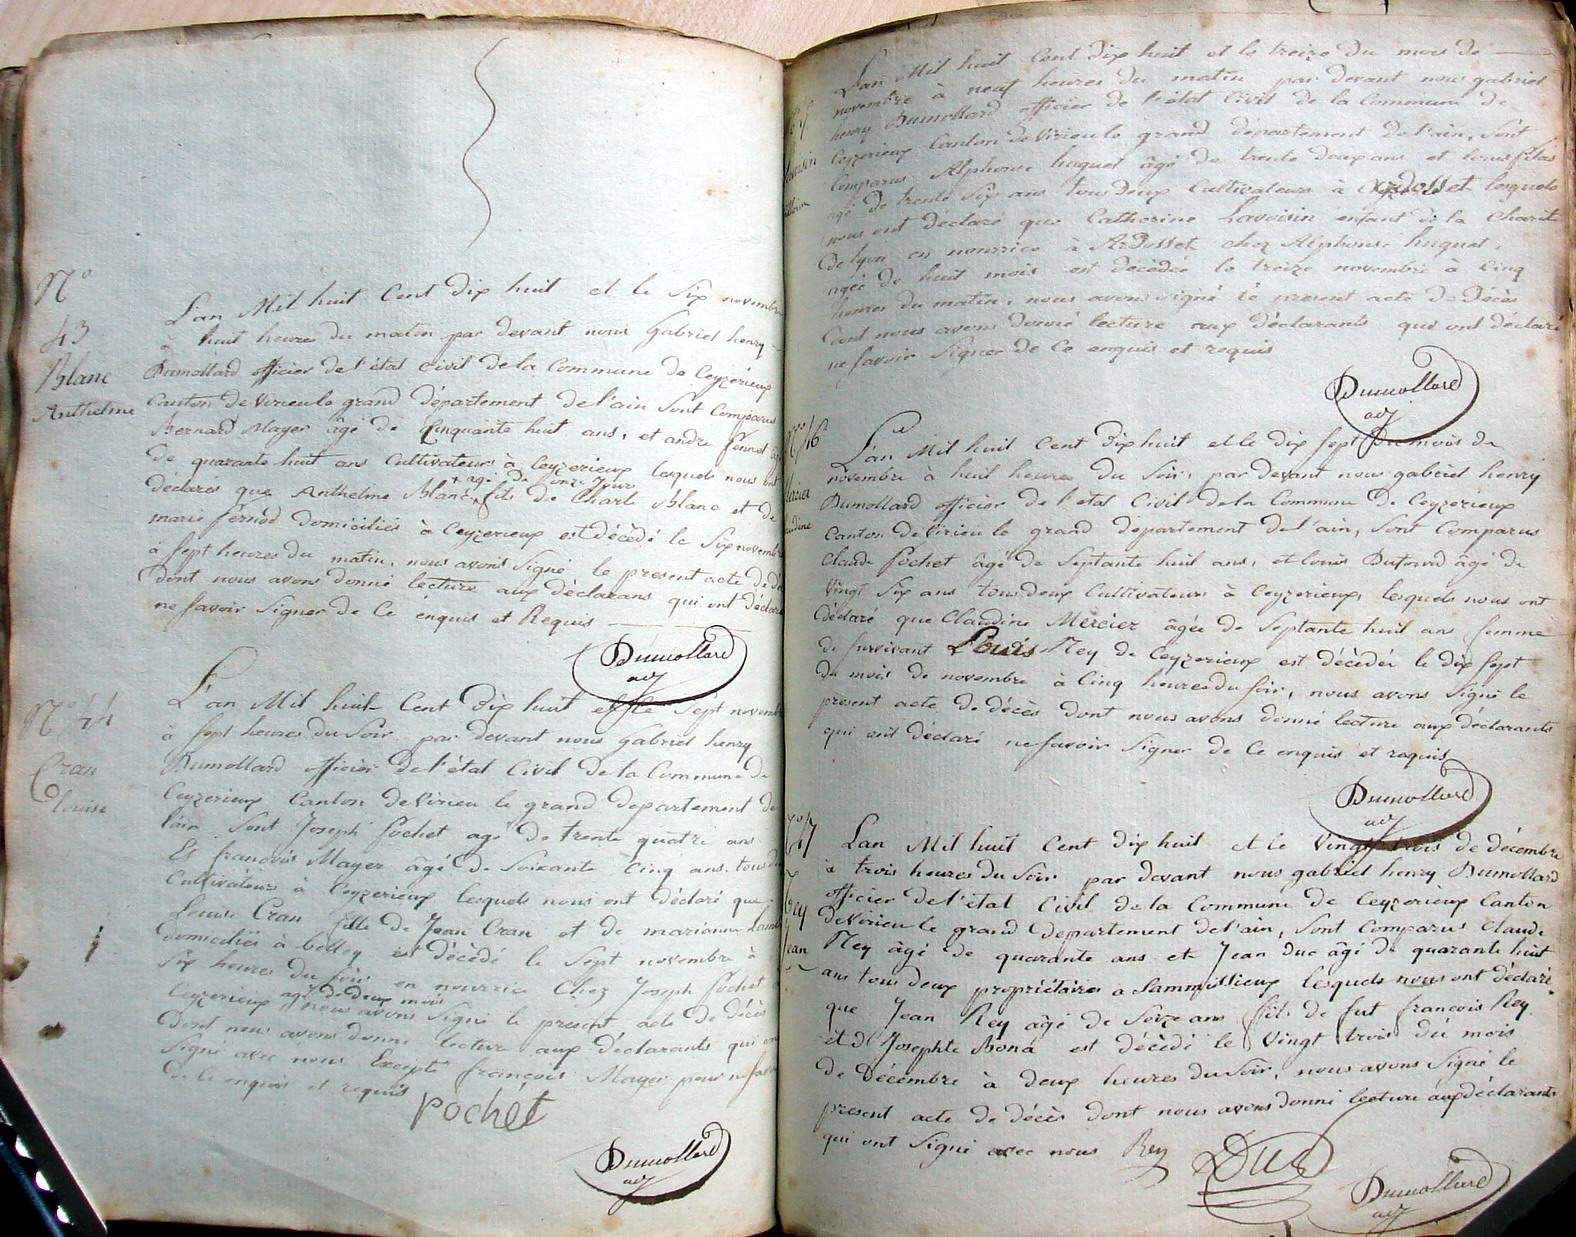 N°
43
Blanc
Anthelme
L'an Mil huit Cent dix huit et le Six novembre
à huit heures du matin par devant nous Gabriel henry
Dumollard officier de l'état Civil de la Commune de Ceyzerieux
Canton de Virieu le grand département de l'ain Sont Comparus
Bernard Mayer âgé de Cinquante huit ans, et andre fernod âgé
de quarante huit ans Cultivateurs à Ceyzerieux lesquels nous ont
+ agé de onze Jour
déclarés que Anthelme Blanc + fils de Charle Blanc et de
marie fernod domiciliés à Ceyzerieux est décédé le Six novembre
à Sept heures du matin, nous avons Signé le present acte de
dont nous avons donné lecture aux déclarans qui ont déclaré
ne Savoir Signer de Ce enquis et Requis
Dumollard
adj
N° 44
Cran
louise
L'an Mil huit Cent Dix huit et le Sept novembre
à Sept heures du Soir par devant nous Gabriel henry
Dumollard officier de l'état Civil de la Commune de
Ceyzerieux Canton de Virieu le grand département de
l'ain Sont Joseph Pochet agé de trente quatre ans
Et françois Mayer âgé de Soixante Cinq ans tous deux
Cultivateurs à Ceyzerieux lesquels nous ont déclaré que
Louise Cran fille de Jean Cran et de marianne
domiciliés à belley est décédé le Sept novembre à
Six heures du Soir en nourrice Chez Joseph Pochet
agé de deux mois
Ceyzerieux nous avons Signé le present acte de décès
Dont nous avons donné lecture aux déclarants qui ont
Signé avec nous Excepté françois Mayer pour ne Savoir
de Ce enquis et requis
Pochet
Dumollard
adj
L'an Mil huit Cent Dix huit et le treize du mois de
novembre à neuf heures du matin par devant nous gabriel
henry Dumollard officier de l'état Civil de la Commune de
Ceyzerieux Canton de Virieu le grand département de l'ain, Sont
Comparus Alphonse huguet âgé de trente deux ans et
agé de trente Six ans tous deux Cultivateurs à Ardosset lesquels
nous ont déclaré que Catherine Lavoisin enfant de la Charité
de lyon en nourrice à Ardosset chez Alphonse huguet,
agée de huit mois est décédée le treize novembre à Cinq
heures du matin, nous avons Signé le present acte de Décès
dont nous avons donné lecture aux déclarants qui ont déclaré
ne Savoir Signer de Ce enquis et requis
Dumollard
adj
N° 46
Mercier
L'an Mil huit Cent Dix huit et le dix Sept Du mois de
novembre à huit heures du Soir, par devant nous gabriel henry
Dumollard officier de l'état Civil de la Commune de Ceyzerieux
Canton de Virieu le grand departement de l'ain, Sont Comparus
Claude Pochet âgé de Septante huit ans, et louis Dufourd âgé de
Vingt Six ans tous deux Cultivateurs à Ceyzerieux, lesquels nous ont
Déclaré que Claudine Mercier âgée de Septante huit ans femme
de survivant Louis Rey de Ceyzerieux est décédée le dix Sept
du mois de novembre à Cinq heures du Soir, nous avons Signé le
present acte de décès dont nous avons donné lecture aux déclarants
qui ont déclaré ne Savoir Signer de Ce enquis et requis
Dumollard
adj
47
Rey
Jean
L'an Mil huit Cent dix huit et le Vingt trois de décembre
à trois heures du Soir par devant nous gabriel henry Dumollard
officier de l'état Civil de la Commune de Ceyzerieux Canton
de Virieu le grand departement de l'ain, Sont Comparus Claude
Rey âgé de quarante ans et Jean Duc âgé de quarante huit
ans tous deux propriétaires a lesquels nous ont déclaré
que Jean Rey âgé de Seize ans fils de fut françois Rey
et de Josephte Bona est décédé le Vingt trois du mois
de Décembre à deux heures du Soir, nous avons Signé le
present acte de décès dont nous avons donné lecture aux déclarants
qui ont Signé avec nous Rey
Duc
Dumollard
adj